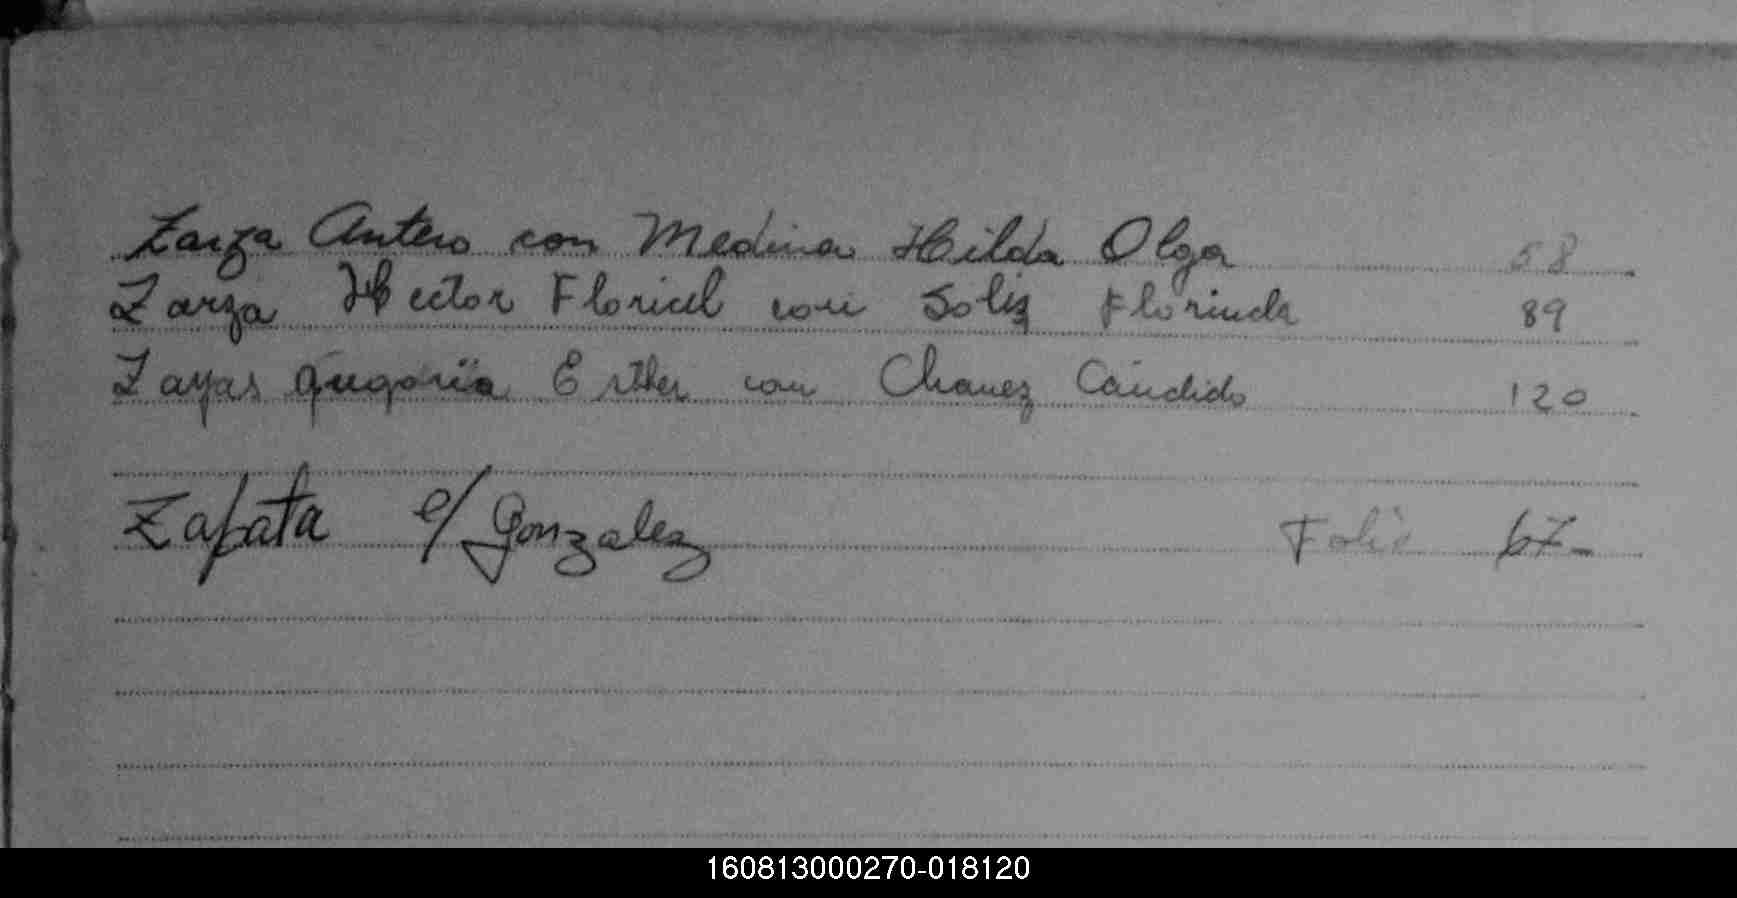 Zarza Antero con Medina Hilda Olga 58
Zarza Hector Floricel con Solis Florinda 89
Zayas Gregoria Esther con Chavez Cándido 120
Zapata c/ Gonzalez Folio 67-
160813000270-018120